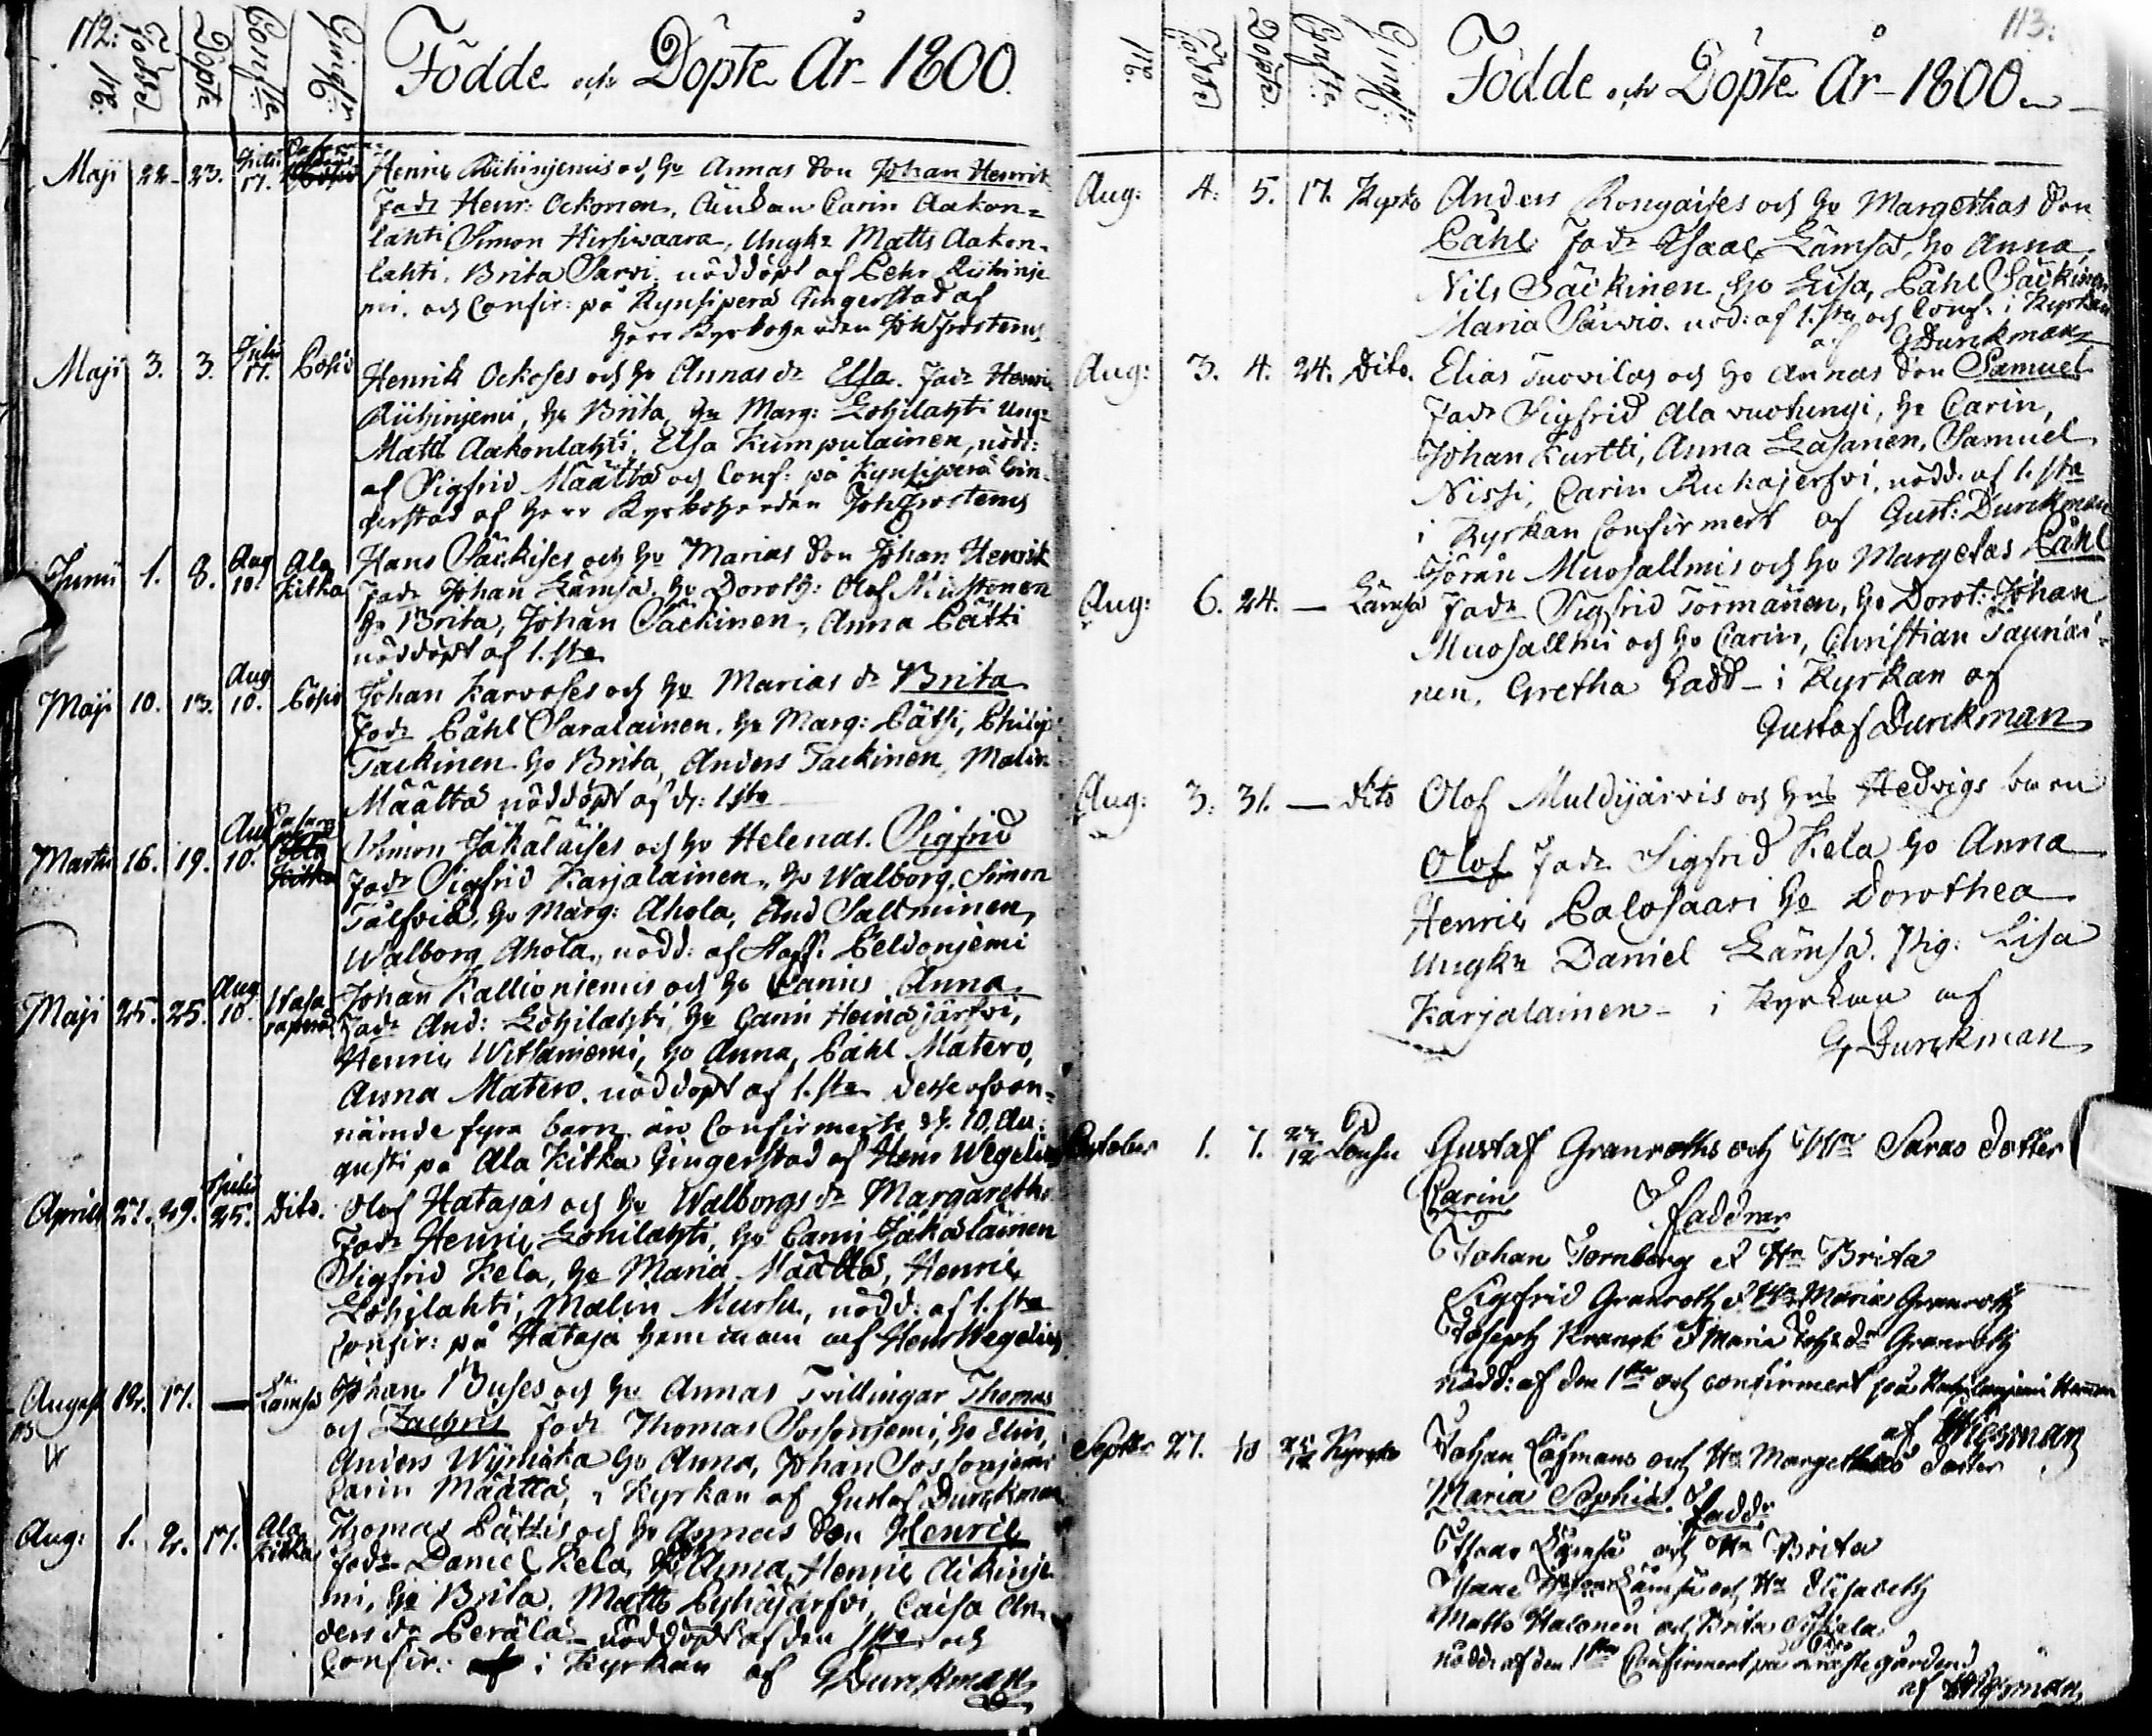 112.
Födde
Döpte
Födde och Döpte År 1800.
Maji 22. 23. 17. Henric Riihinjemis och hu Annas Son Johan Henrik
Fadr Henr: Ockonen, Änkan Carin Aakon=
lahti Simon Hirsiwaara, Ungkr Matts Aakon=
lahti, Brita Sarvi, nöddöpt af Pehr Riihinje
mi, och Confir: på Kynsiperä Gingerstad af
Herr Kyrkoherden Joh Frosterus
Maji 3. 3. Julii 17. Posio Henrik Ockoses och hu Annas dr Elsa. Fadr Henric
Riihinjemi, hu Brita, hu Marg: Lohilahti Ung:
Matts Aakonlahti, Elsa Kumpulainen, nödd:
af Sigfrid Määttä och Conf: på Kynsiperä Gin=
gerstad af Herr Kyrkoherden Joh Frosterus
Junii 1. 8. Aug 10. Ala Kitka Hans Säckises och hu Marias Son Johan Henrik
Fadr Johan Lämsä, hu Doroth: Olof Mustonen
hu Brita, Johan Säckinen, Anna Pätti
nöddöpt af 1.sta
Maji 10. 13. Aug 10. Posio Johan Karvoses och hu Marias dr Brita
Fadr Påhl Saralainen, hu Marg: Pätsi, Philip
Tackinen hu Brita, Anders Tackinen, Malin
Määttä nöddöpt af dr: 1sta
Martii 16. 19. Aug 10. Simon Jäkäläises och hu Helenas. Sigfrid
Fadr Sigfrid Karjalainen, hu Walborg, Simon
Tålfvid, hu Marg: Ahola, And Salminen,
Walborg Ahola, nödd: af Peldonjemi
Maji 25. 25. Aug 10. Johan Kallionjemis och hu Carins Anna
Fadr And: Lohilahti, hu Carin Heinäjärfvi,
Henric Witsaniemi, hu Anna, Påhl Matero,
Anna Matero. nöddöpt af 1.sta Desse ofvan=
nämde fyra barn äro Confirmerte d. 10 Au:
gusti på Ala Kitka Gingerstad af Henr Wegelius
Aprill 27. 29. Julii 25. Dito. Olof Hatajas och hu Walborgs dr Margaretha
Fadr Henric Lohilahti, hu Carin Jäkäläinen
Sigfrid Kela, hu Maria Määttä, Henric
Lohilahti, Malin Mursu, nödd: af 1.sta
Confir: på Hataja hemman af Henr Wegelius
August 12. 17. — Lämsä Johan Buses och hu Annas Tvillingar Thomas
och Zachris Fadr Thomas Sossonjemi, hu Elin,
Anders Wijnikka hu Anna, Johan Sossonjemi
Carin Määttä, i Kyrkan af Gustaf Durckman
Aug: 1. 2. 17. Ala Kitka Thomas Pättis och hu Annas Son Henric
Fadr Daniel Kela, hu Anna, Henric Aikinje
mi, hu Brita, Matts Pyhäjärfvi, Caisa An=
ders dr Perälä nöddöpt af den 1sta och
Confir: i Kyrkan af G Durckman
113.
Födde
Döpte
Födde och Döpte År 1800.
Aug: 4. 5. 17. Kyrko Anders Rongaises och hu Margethas Son
Påhl Fadr Isaac Lämsä, hu Anna,
Nils Säckinen hu Lisa, Påhl Säckinen
Maria Särvio. nöd: af 1.sta och Conf: i Kyrkan
af G Durckman
Aug: 3. 4. 24. Dito. Elias Tuovilas och hu Annas Son Samuel
Fadr Sigfrid Alavuotungi, hu Carin,
Johan Kurtti, Anna Lasanen, Samuel
Nissi, Carin Rukajerfvi, nödd: af 1.sta
i Kyrkan Confirmert af Gust: Durckman
Aug: 6. 24. — Lämsä Jöran Muosallmis och hu Margetas Påhl
Fadr Sigfrid Törmänen, hu Dorot: Johan
Muosallmi och hu Carin, Christian Tauriai=
nen, Gretha Gadd – i Kyrkan af
Gustaf Durckman
Aug: 3. 31. — Dito Olof Muldijärvis och hus Hedvigs barn
Olof Fadr Sigfrid Kela hu Anna
Henric Palosaari hu Dorothea
Ungkr Daniel Lämsä. Pig: Lisa
Karjalainen – i Kyrkan af
G Durckman
October 1. 7. 27/12 Gustaf Granroths och Hu Saras Dotter
Carin
Faddrar
Johan Tornberg & Hu Brita
Sigfrid Granroth & Hu Maria Granroth
Joseph Kranck & Maria Johs dr Granroth
nödd: af den 1sta och confirmert på
af
Septbr 27. Kyrko Johan Löfmans och Hu Margethas Dotter
Maria Sophia. Faddr
Isaac Lämsä och Hu Brita
Isaac Lämsä och Hu Elisabeth
Matts Halonen och Brita
nödd: af den 1sta Confirmert på Prästegården
af